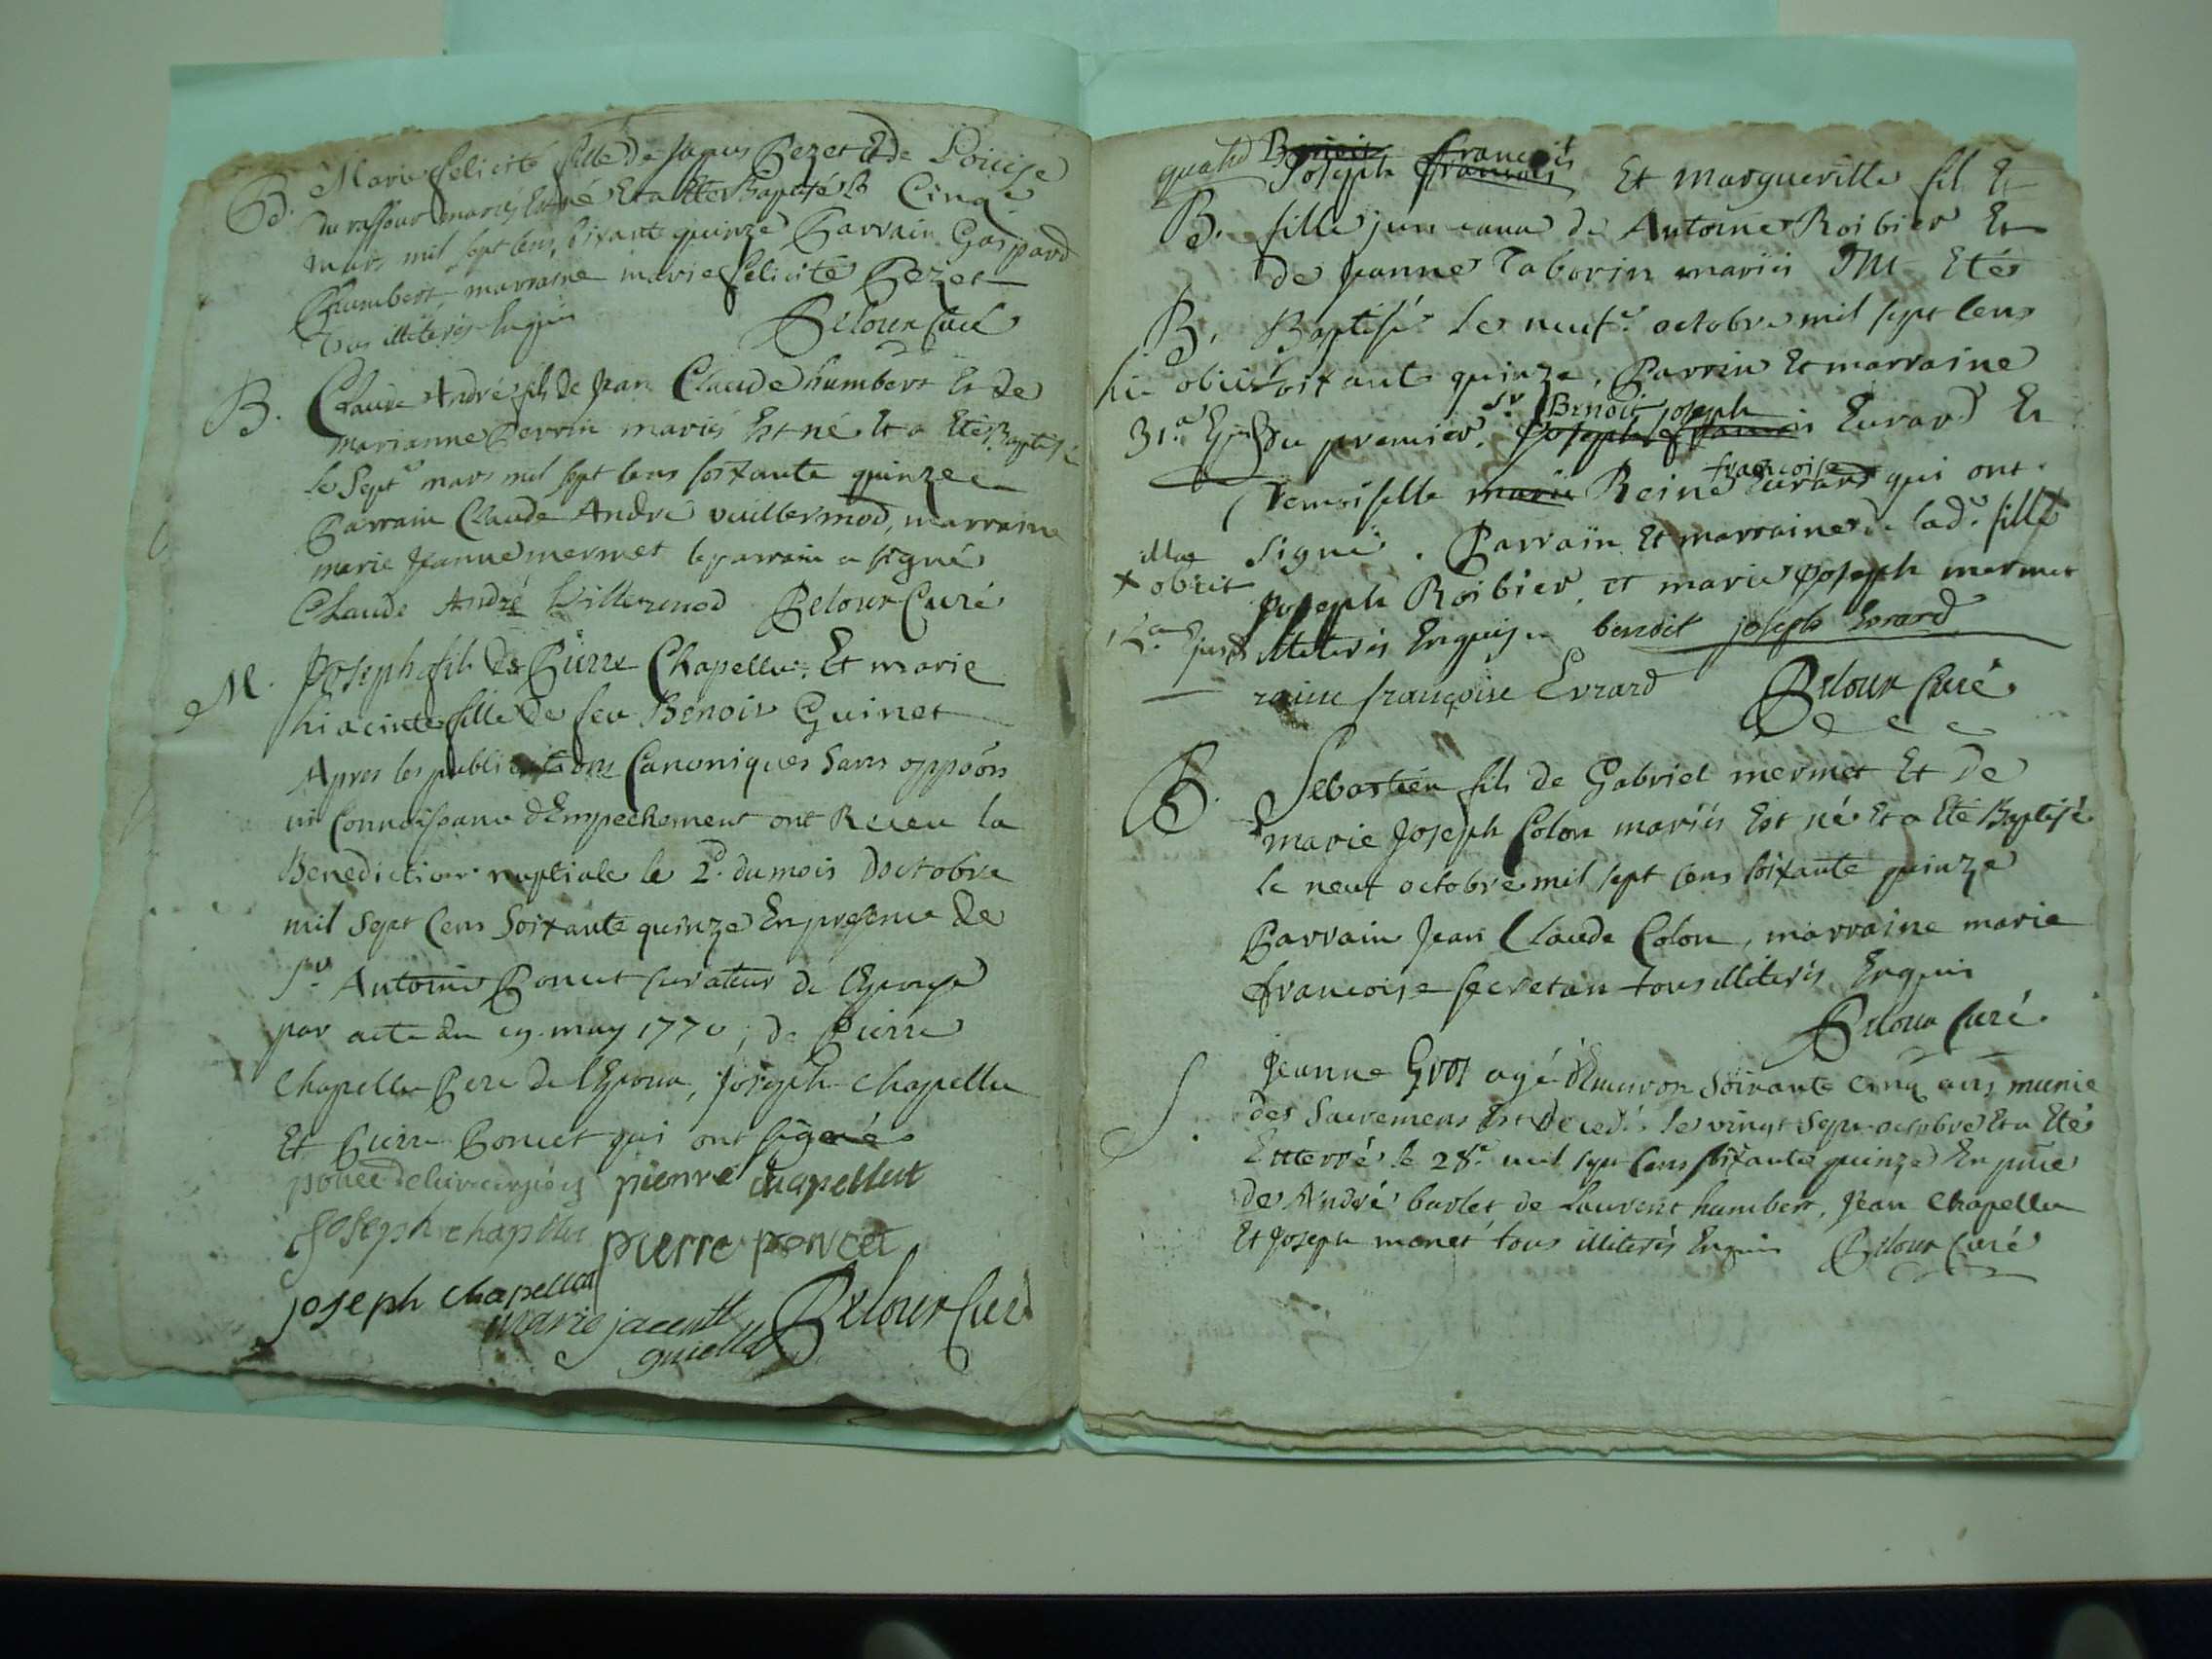 B. Marie felicité fille de Jaques Pezet Et de Louise
du raffour mariés Est né Et a Eté Baptisé le Cinqe
mars mil sept cens soixante quinze Parrain Gaspard
humbert, marraine marie felicité Pezet
tous illiterés Enquis
Belour Curé
B. Claude André fils de Jean Claude humbert Et de
marianne Perrin mariés Est né Et a Eté Baptisé
le Septe mars mil sept cens soixante quinze
Parrain Claude André vuillermod, marraine
marie Jeanne mermet le parrain a signé
Claude André Villermod Belour Curé
M. Joseph fils de Pierre Chapellu Et marie
hiacinte fille de feu Benoit Guinet
Apres les publications Canoniques Sans oppoõn
ni Connoissance d'Empechement ont Receu la
Benediction nuptiale le 2d. du mois Doctobre
mil Sept Cens Soixante quinze En presence de
Sr. Antoine Poncet Curateur de l'Epouse
par acte du 19. may 1770, de Pierre
Chapellu Pere de l'Epoux, Joseph Chapellu
Et Pierre Poncet qui ont signé
pierre chapellut
Joseph chapellut pierre poncet
joseph chapellut
marie jacentte Belour Curé
quad Benoit francois
Joseph francois Et margueritte fil Et
B. fille jumeaux de Antoine Roibier Et
de Jeanne Taborin mariés ont Etés
B. Baptisés le neufe. octobre mil sept cens
hic obiit soixante quinze, Parrin Et marraine
sr Benoit joseph
31.a Ejusd du premier. Joseph francois Evrard Et
francoise
Demoiselle marie Reine Evrard qui ont
illa signé. Parrain Et marraine de lade. fille
x obiit Joseph Roibier, et marie Joseph mermet
12.a Ejusd illiterés Enquis benoit joseph Evrard
raine françoise Evrard Belour Curé
B. Sebastien fils de Gabriel mermet Et de
marie Joseph Colon mariés Est né Et a Eté Baptisé
le neuf octobre mil sept cens soixante quinze
Parrain Jean Claude Colon, marraine marie
francoise secretan tous illiterés Enquis
Belour Curé
S. Jeanne Gros agé d'Environ Soixante Cinq ans munie
des Sacremens Est Decedé le vingt Sept octobre Et a Eté
Enterré le 28e. mil sept cens soixante quinze En pñce
de André barlet de Laurent humbert, Jean Chapellu
Et Joseph monet tous illiterés Enquis Belour Curé